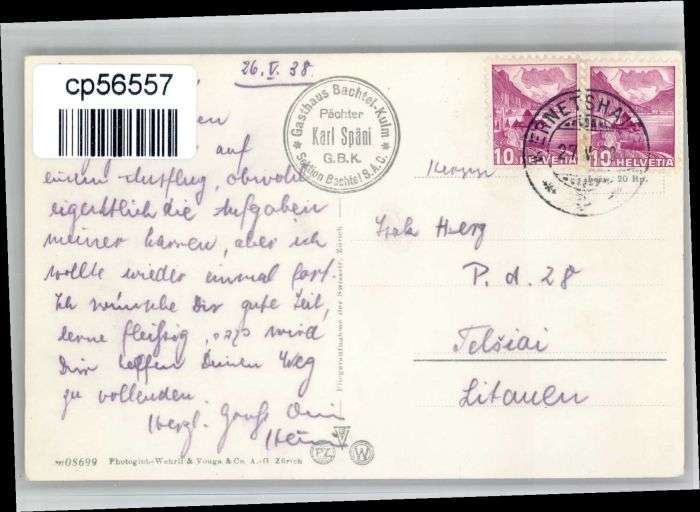 cp56557
26.V.38.
Gasthaus Bachtel-Kulm
Pächter
Karl Späni
G.B.K.
Sektion Bachtel S.A.C.
10 HELVETIA
10 HELVETIA
20 Rp.
auf
einen Ausflug, obwohl
eigentlich die Aufgaben
meiner harren, aber ich
wollte wieder einmal fort.
Ich wünsche Dir gute Zeit,
lerne fleissig, wird
Dir helfen Deinen Weg
zu vollenden.
Herzl. Gruß Dein
Herrn
Berg
P. d. 28
Telšiai
Litauen
Fliegeraufnahme der Swissair, Zürich
08699 Photoglob-Wehrli & Vouga & Co. A.-G. Zürich
PZ W